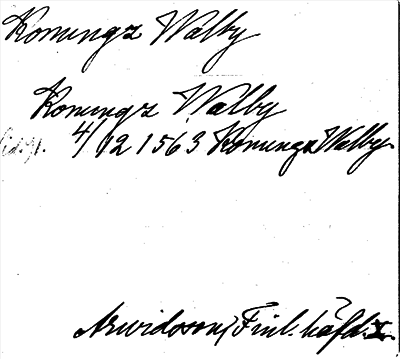 Konungz Walby
Konungz Walby
4/12 1563 Konunga Walby.
Arwidsson, Finl. häfd. I.